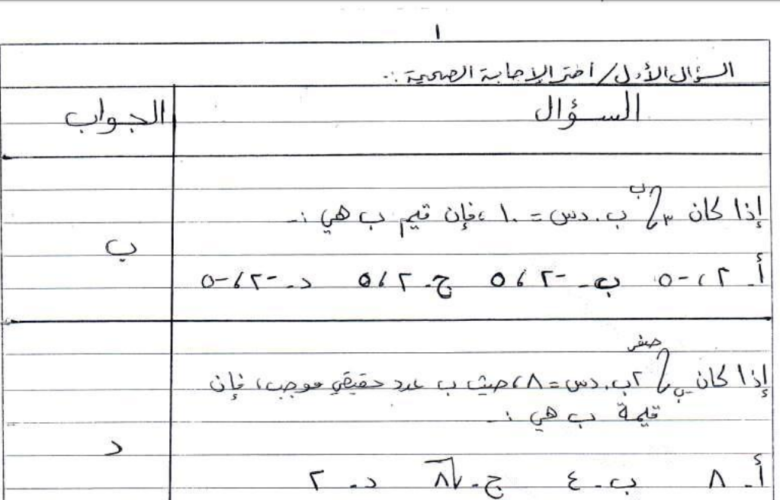 ١
السؤال الأول / اختر الإجابة الصحيحة :-
السؤال الجواب
إذا كان ٣∫ب ب.دس = ١٠، فإن قيم ب هي :-
ب
أ- ٢، -٥ ب- -٢، ٥ ج- ٢، ٥ د- -٢، -٥
صفر
إذا كان ب∫ ٢ب.دس = ٨، حيث ب عدد حقيقي موجب، فإن
قيمة ب هي :-
د
أ- ٨ ب- ٤ ج- √٨ د- ٢